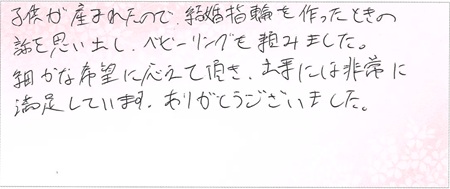 子供が産まれたので、結婚指輪を作ったときの
話を思い出し、ベビーリングを頼みました。
細かな希望に応えて頂き、出来には非常に
満足しています。ありがとうございました。